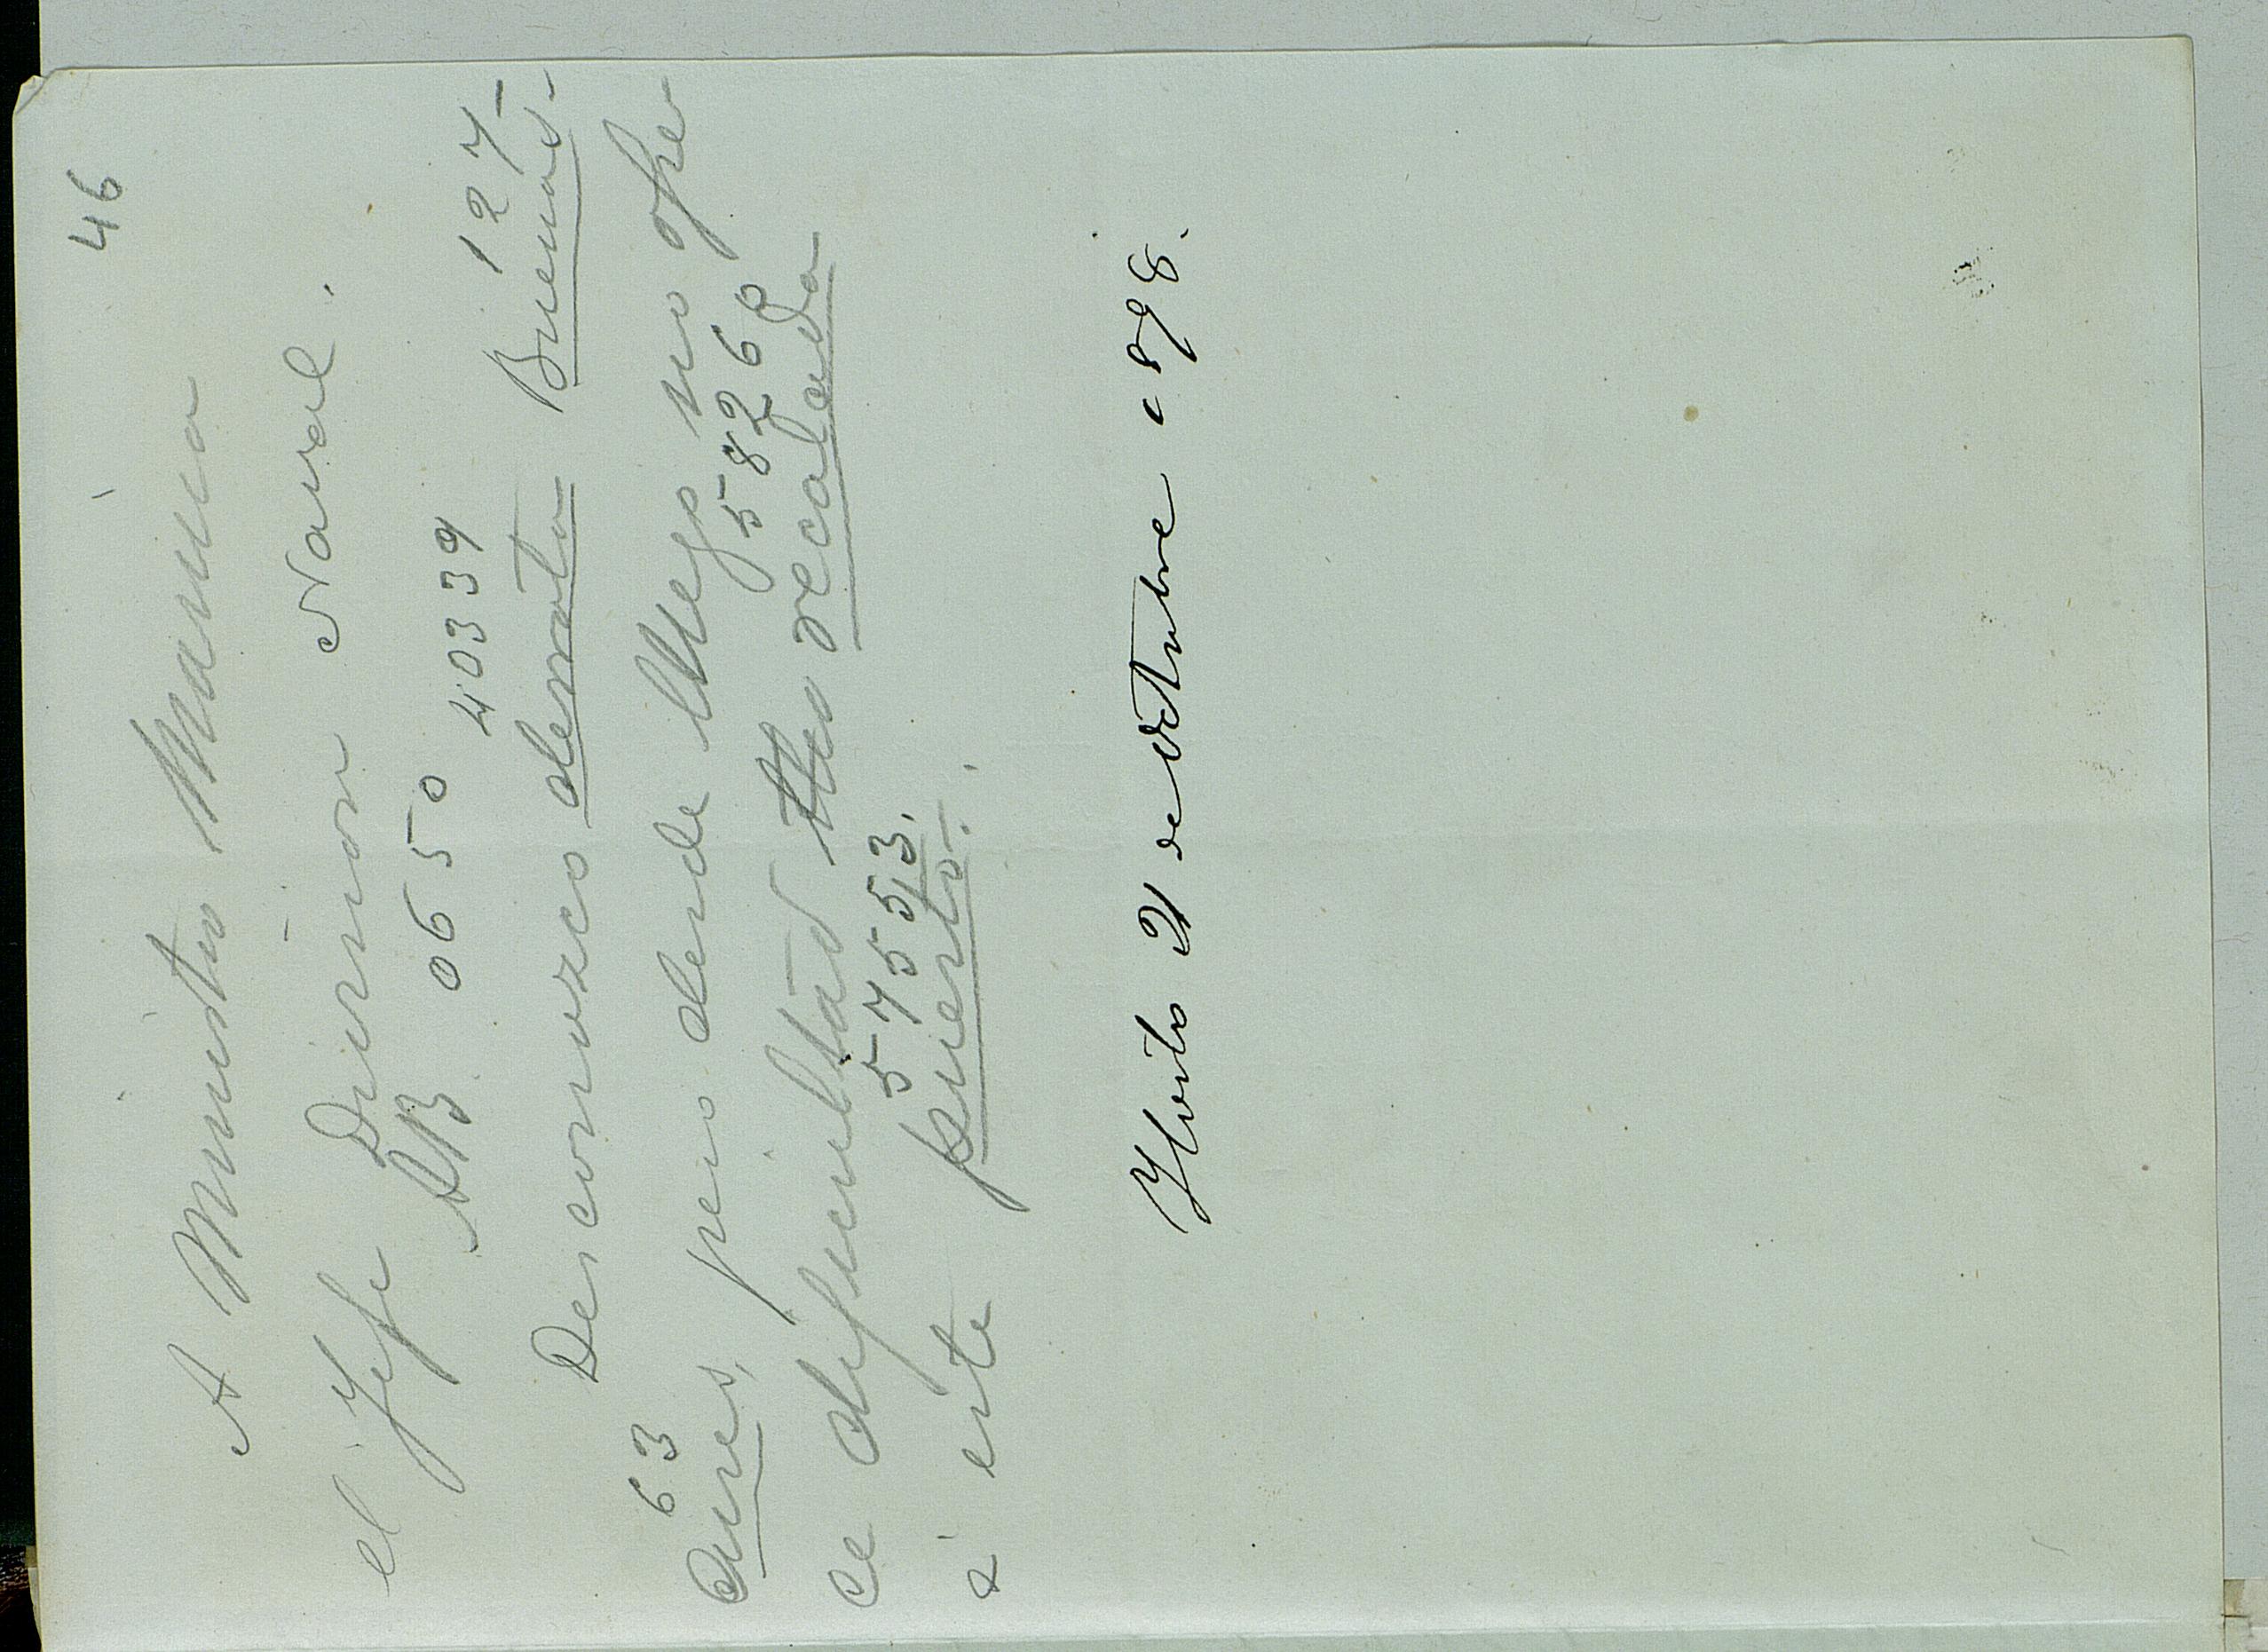 46
A Ministro Marina
el Jefe Division Naval.
AB 0650 40339 127-
Desconozco derrota Buenos-
63
Aires, pero desde luego no ofre
58260
ce dificultad recalada
57553.
á este puerto.
21 de Octubre 1898.